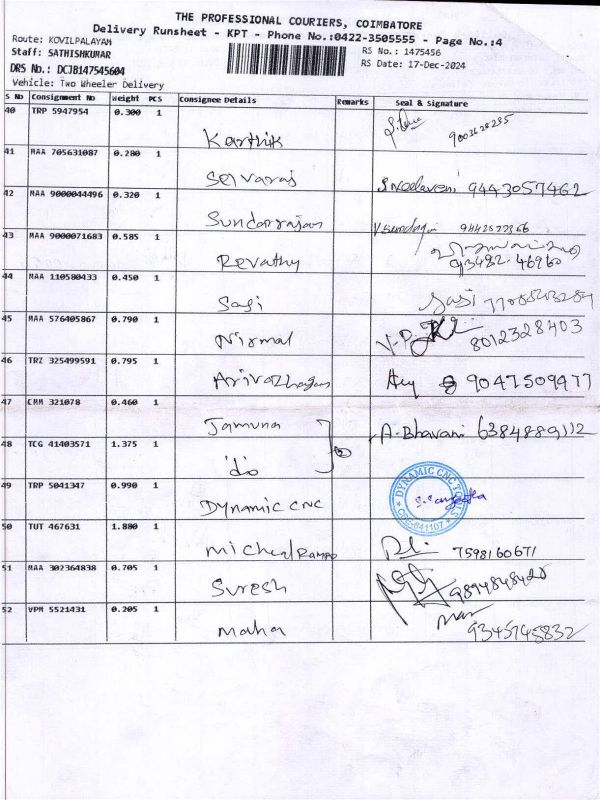 THE PROFESSIONAL COURIERS, COIMBATORE
Delivery Runsheet - KPT - Phone No.:0422-3505555 - Page No.:4
Route: KOVILPALAYAM
RS No.: 1475456
Staff: SATHISHKUMAR
RS Date: 17-Dec-2024
DRS No.: DCJB147545604
Vehicle: Two Wheeler Delivery
S No Consignment No Weight PCS Consignee Details Remarks Seal & Signature
40 TRP 5947954 0.300 1
Karthik 9003628235
41 MAA 705631087 0.280 1
Selvaraj 9443057462
42 MAA 9000044496 0.320 1
Sundarrajan
43 MAA 9000071683 0.585 1
Revathy 93452.46960
44 MAA 110580433 0.450 1
Sasi Sasi
45 MAA 576405867 0.790 1
Nirmal 8012328403
46 TRZ 325499591 0.795 1
Arivazhagan 9047509977
47 CHM 321078 0.460 1
Jamuna A.Bhavani 6384889112
48 TCG 41403571 1.375 1
do
49 TRP 5041347 0.990 1
DYNAMIC CNC DYNAMIC CNC
CBE-641107
50 TUT 467631 1.880 1
Micheal 7598160671
51 MAA 302364838 0.705 1
Suresh 9894848420
52 VPM 5521431 0.205 1
Maha 9345745832